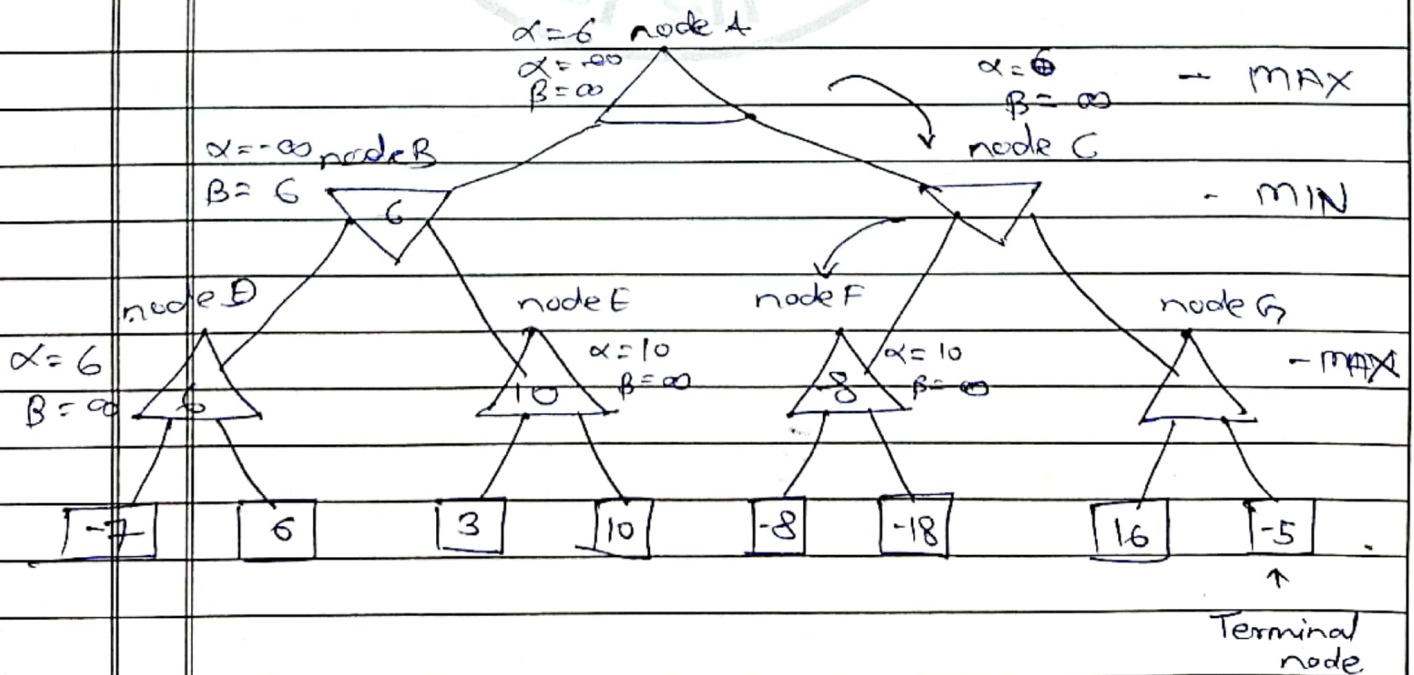 α=6 node A
α=-∞
β=∞
α=6
β=∞
- MAX
α=-∞ node B
β=6
6
node C
- MIN
node D
α=6
β=∞
6
node E
α=10
β=∞
10
node F
α=10
β=∞
-8
node G
- MAX
-7
6
3
10
-8
-18
16
-5
↑
Terminal
node